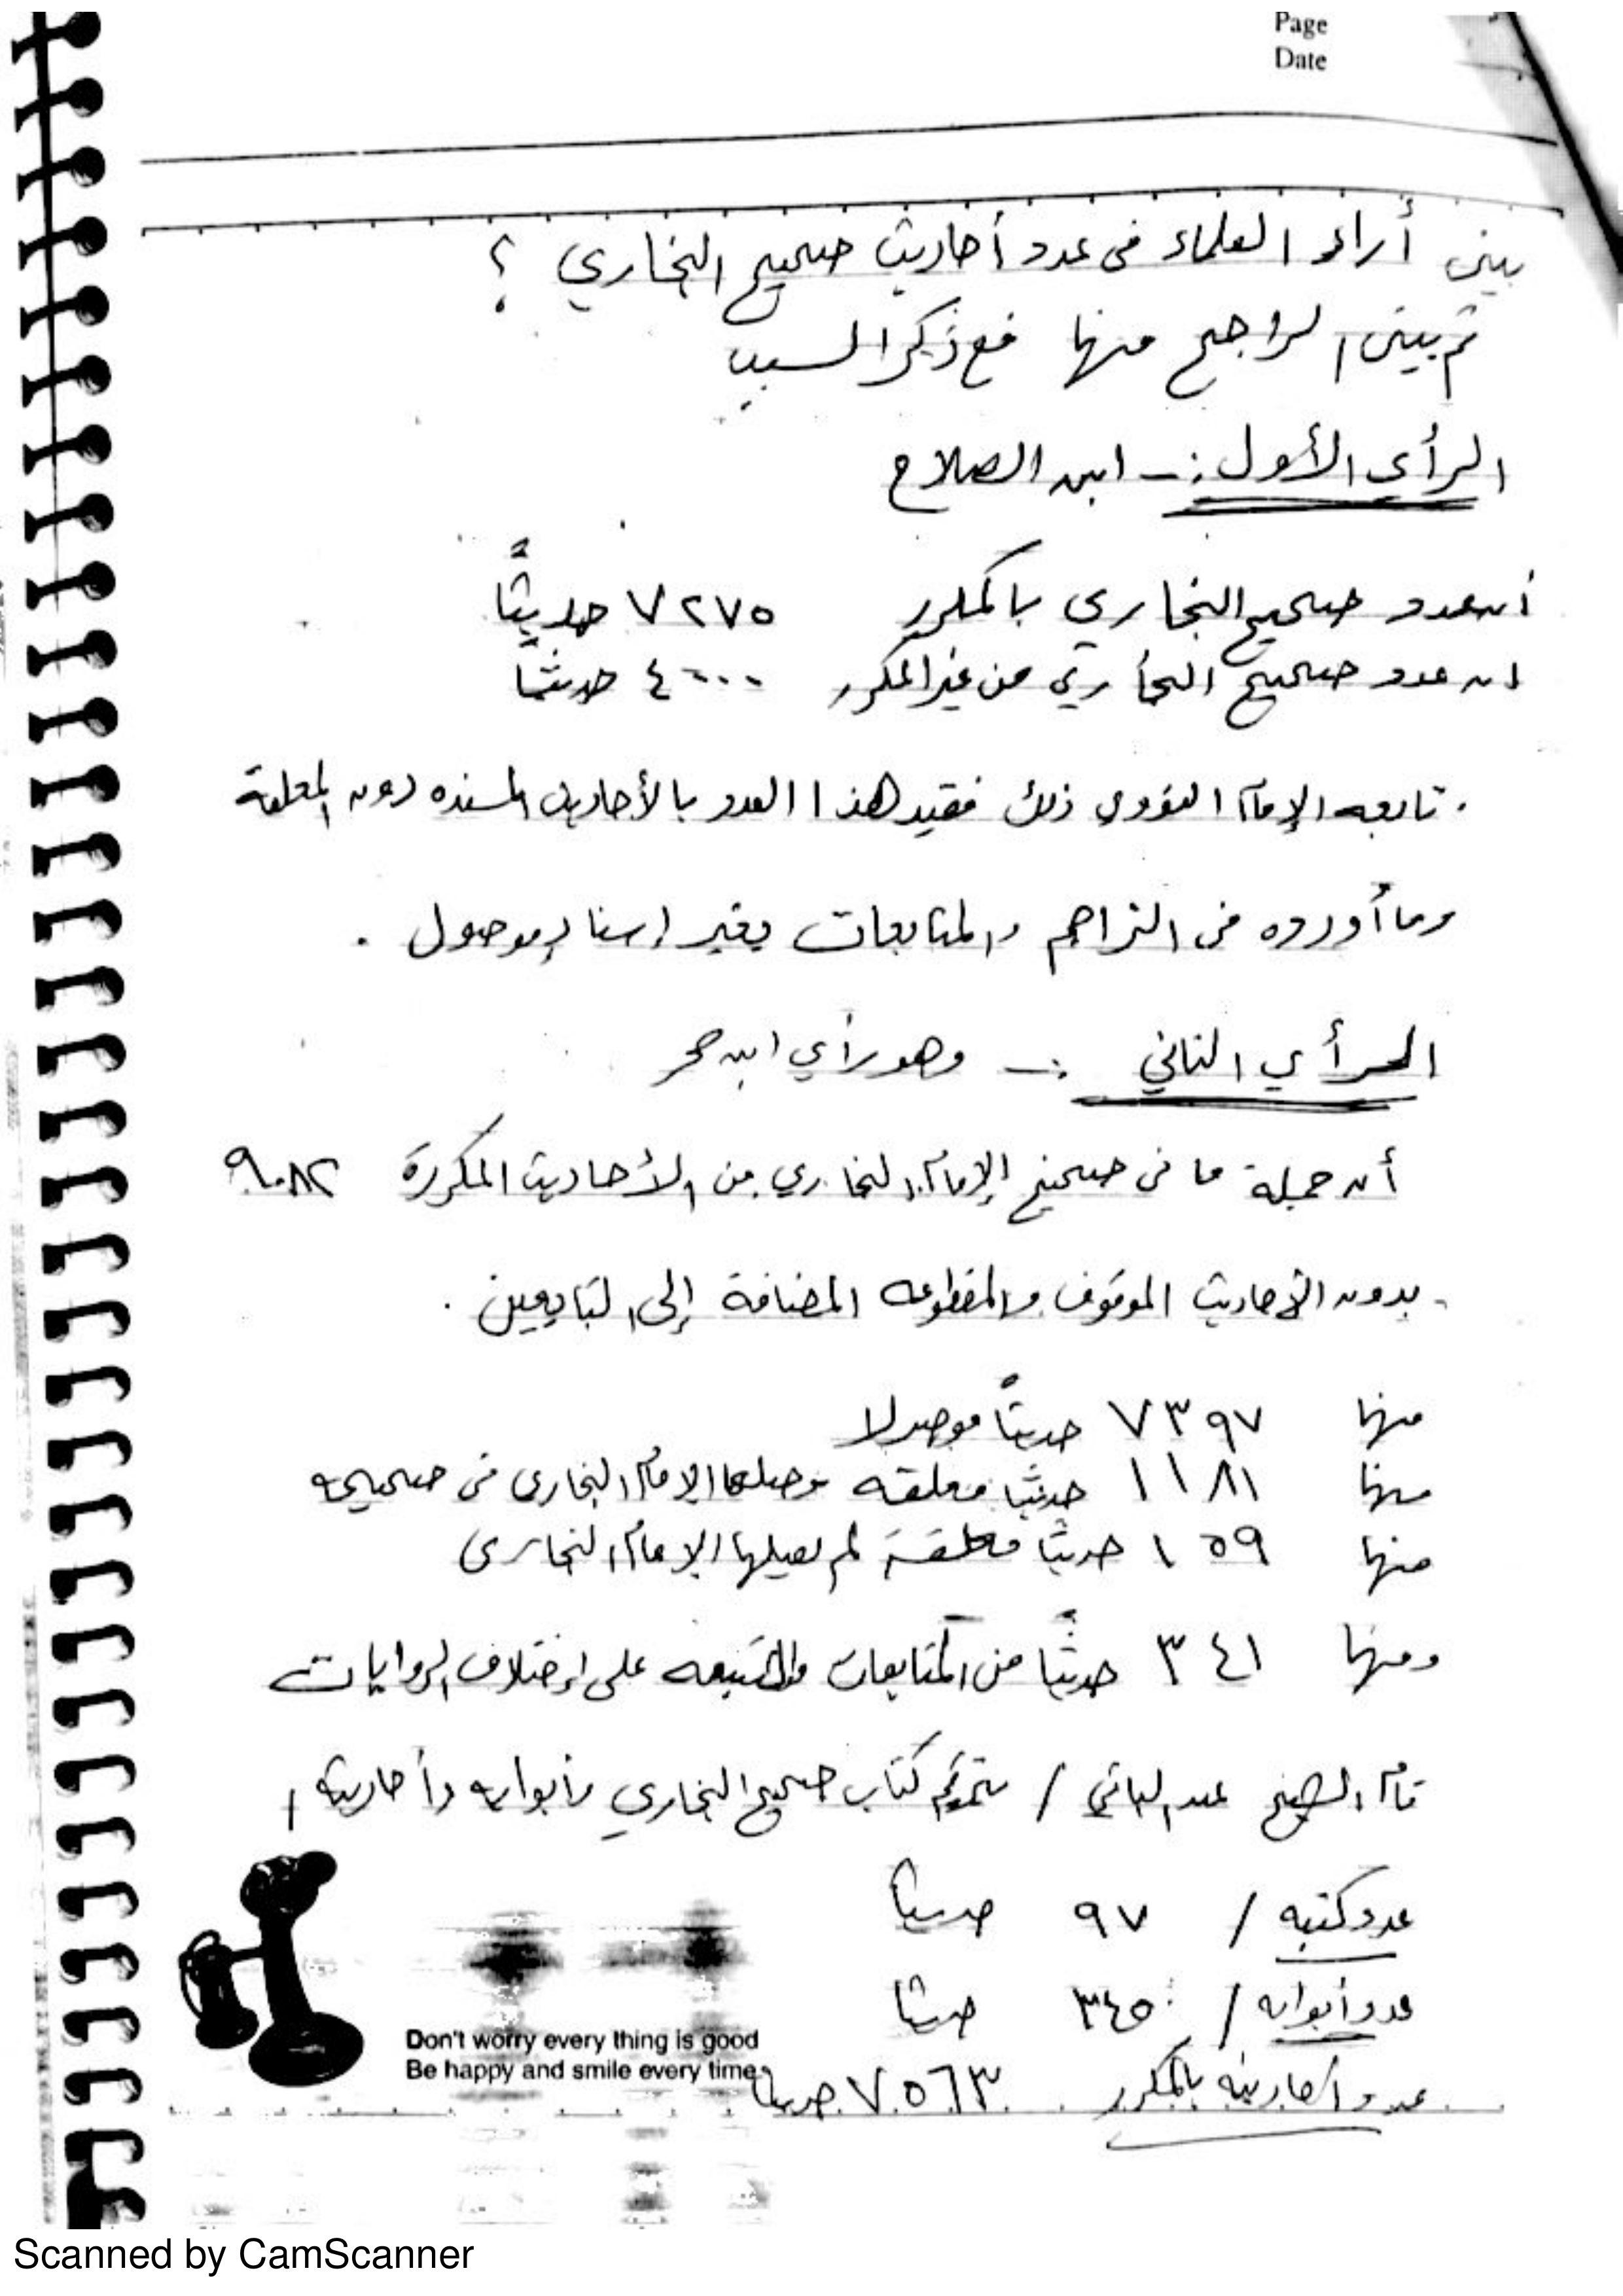 Page
Date
بيني أراء العلماء في عدد أحاديث صحيح البخاري ؟
ثم بيني الراجح منها مع ذكر السبب
الرأي الأول :- ابن الصلاح
أن عدد صحيح البخاري بالمكرر ٧٢٧٥ حديثًا
ان عدد صحيح البخاري من غير المكرر ٤٠٠٠ حديثا
. تابعه الإمام النووي ذلك فقيد هذا العدد بالأحاديث المسنده دون المعلقة
وما أورده في التراجم والمتابعات بغير إسناد موصول .
الرأي الثاني :- وهو رأي ابن حجر
أن جملة ما في صحيح الإمام البخاري من الأحاديث المكررة ٩٠٨٢
. بدون الأحاديث الموقوف والمقطوعه المضافة إلى التابعين .
منها ٧٣٩٧ حديثاً موصولا
منها ١١٨١ حديثا معلقه وصلها الإمام البخاري في صحيحه
منها ١٥٩ حديثا معلقة لم يصلها الإمام البخاري
ومنها ٣٤١ حديثًا من المتابعات على إختلاف الروايات
قام الشيخ عبد الباقي / بترقيم كتاب صحيح البخاري وأبوابه وأحاديثه /
عدد كتبه / ٩٧ حديثا
عدد أبوابه / ٣٤٥٠ حديثا
عدد أحاديثه بالمكرر ٧٥٦٣ حديثا
Don't worry every thing is good
Be happy and smile every time
Scanned by CamScanner